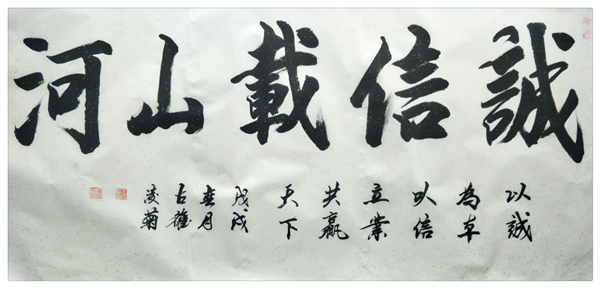 誠信載山河
以誠
為本
以信
立業
共贏
天下
戊戌
春月
凌菊